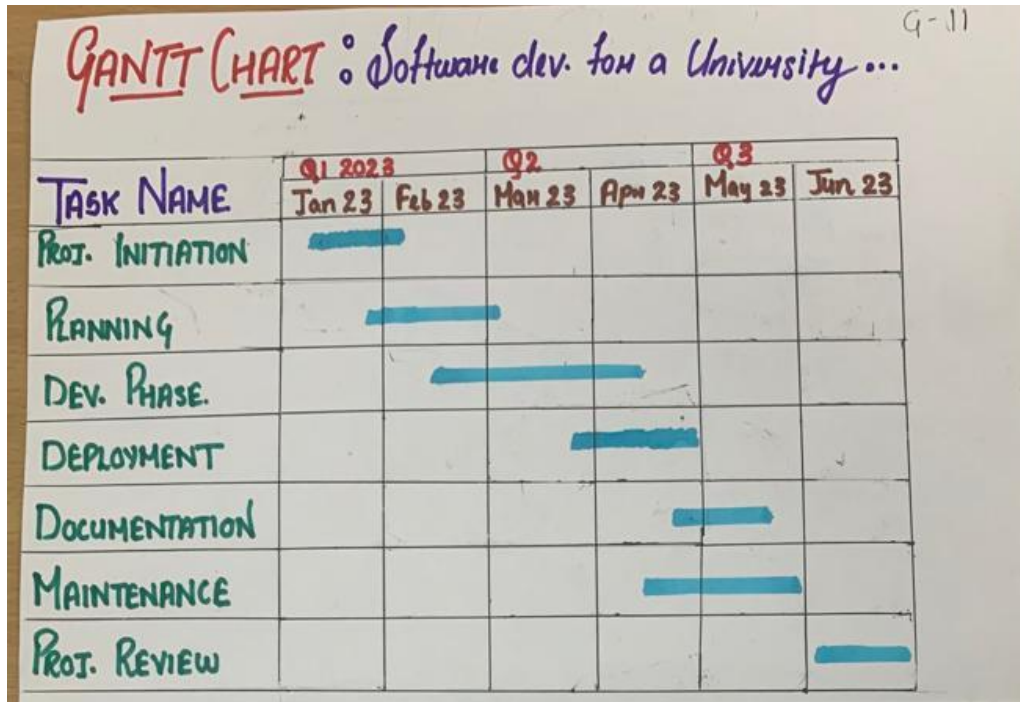 G-11
GANTT CHART : Software dev. for a University...
Q1 2023 Q2 Q3
TASK NAME Jan 23 Feb 23 Mar 23 Apr 23 May 23 Jun 23
PROJ. INITIATION
PLANNING
DEV. PHASE.
DEPLOYMENT
DOCUMENTATION
MAINTENANCE
PROJ. REVIEW